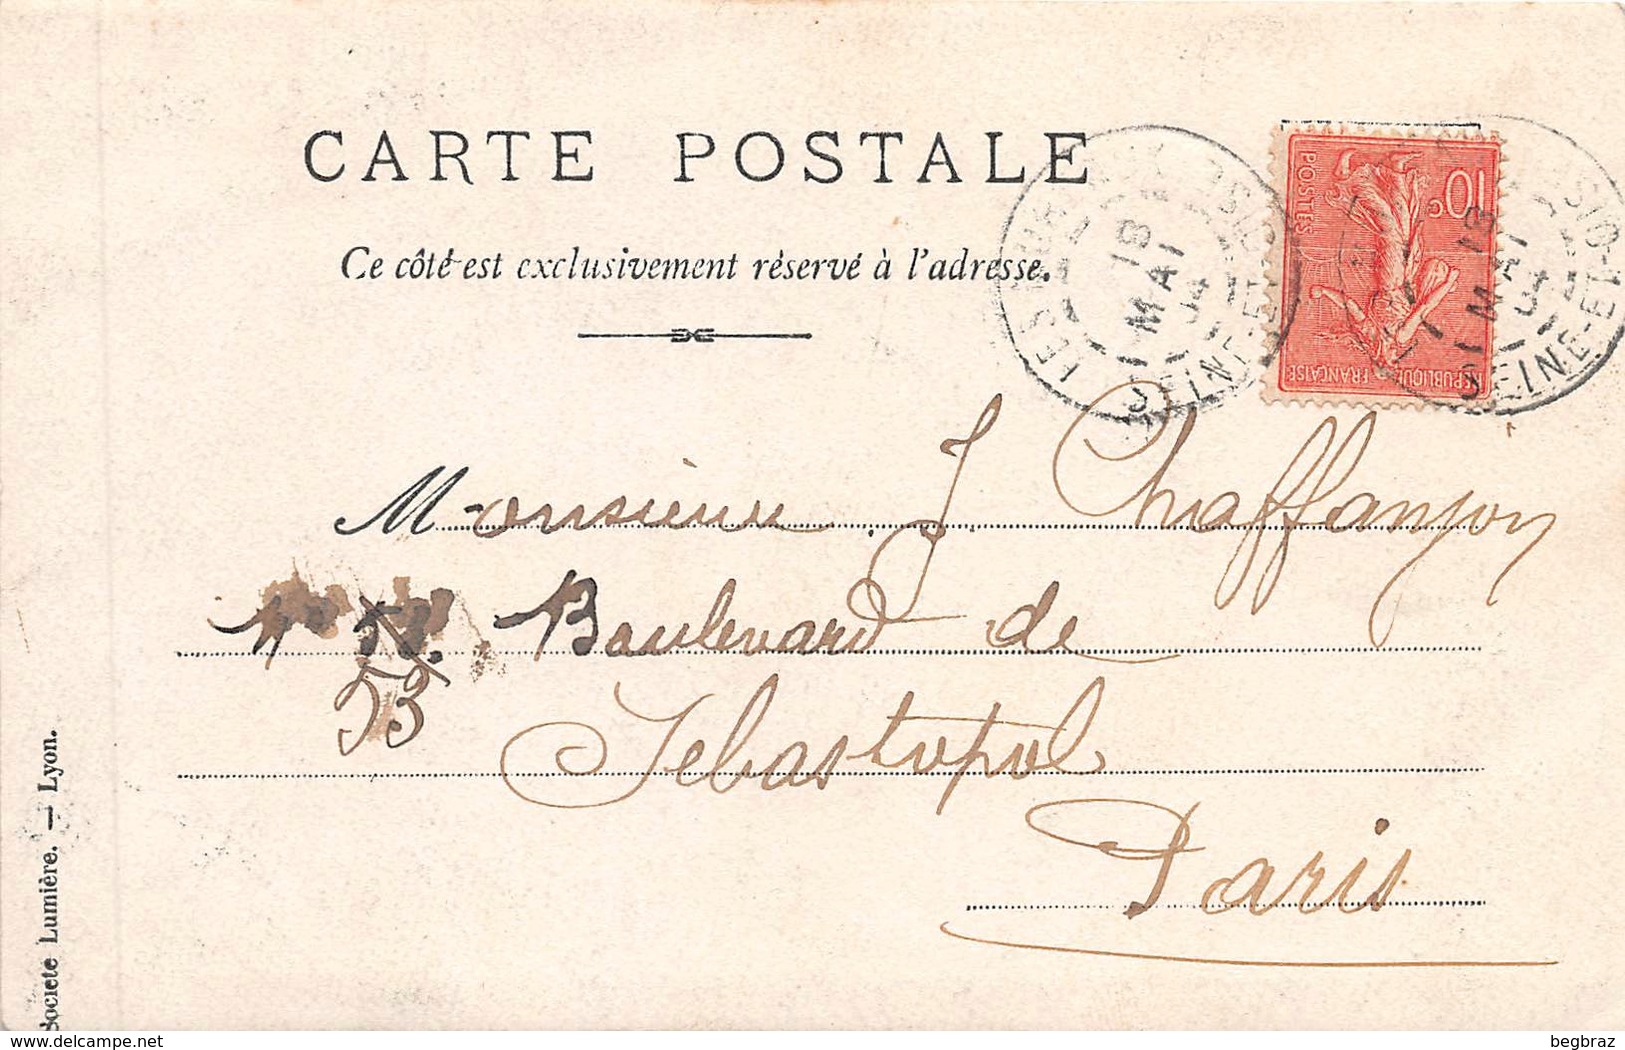 CARTE POSTALE
Ce côté est exclusivement réservé à l'adresse.
POSTES
10c
REPUBLIQUE FRANÇAISE
18
MAI
04
SEINE-ET-OISE
18
MAI
04
SEINE-ET-OISE
Monsieur J Chaffanjon
No Boulevard de
53
Sebastopol
Paris
Société Lumière. — Lyon.
delcampe.net
begbraz